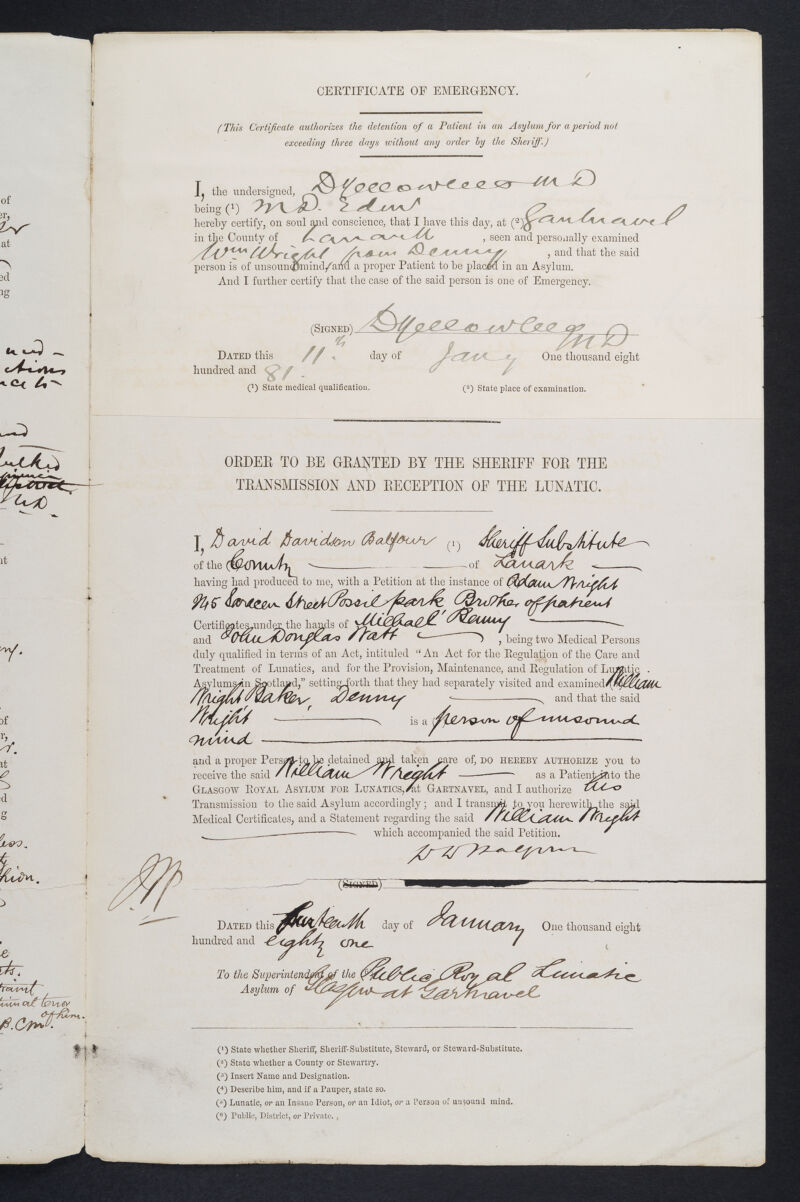 of
er,
at
ed
ng
CERTIFICATE OF EMERGENCY.
(This Certificate authorizes the detention of a Patient in an Asylum for a period not
exceeding three days without any order by the Sheriff.)
I, the undersigned, D Yellowlees MD
being (¹) M.D. Edin
hereby certify, on soul and conscience, that I have this day, at (²) Gartnavel
in the County of Lanark , seen and personally examined
Wm Wright from Denny , and that the said
person is of unsound mind, and a proper Patient to be placed in an Asylum.
And I further certify that the case of the said person is one of Emergency.
(SIGNED) D Yellowlees MD
DATED this 11th day of Jany One thousand eight
hundred and 81.
(¹) State medical qualification. (²) State place of examination.
ORDER TO BE GRANTED BY THE SHERIFF FOR THE
TRANSMISSION AND RECEPTION OF THE LUNATIC.
I, David Davidson Balfour (¹) Sheriff Substitute
of the County of Lanark
having had produced to me, with a Petition at the instance of Adam Wright
Saracen Street Possil park Brother of patient
Certificates under the hands of Michael
and John Douglas Watt , being two Medical Persons
duly qualified in terms of an Act, intituled "An Act for the Regulation of the Care and
Treatment of Lunatics, and for the Provision, Maintenance, and Regulation of Lunatic
Asylums in Scotland," setting forth that they had separately visited and examined William
Wright Baker, Denny and that the said
Wright is a person of unsound
mind
and a proper Person to be detained and taken care of, DO HEREBY AUTHORIZE you to
receive the said William Wright as a Patient into the
GLASGOW ROYAL ASYLUM FOR LUNATICS, AT GARTNAVEL, and I authorize his
Transmission to the said Asylum accordingly; and I transmit to you herewith the said
Medical Certificates, and a Statement regarding the said William Wright
which accompanied the said Petition.
D D Balfour
(SIGNED)
DATED this fourteenth day of January One thousand eight
hundred and eighty one
To the Superintendent of the Public Royal Lunatic
Asylum of Glasgow at Gartnavel
(¹) State whether Sheriff, Sheriff-Substitute, Steward, or Steward-Substitute.
(²) State whether a County or Stewartry.
(³) Insert Name and Designation.
(⁴) Describe him, and if a Pauper, state so.
(⁵) Lunatic, or an Insane Person, or an Idiot, or a Person of unsound mind.
(⁶) Public, District, or Private.